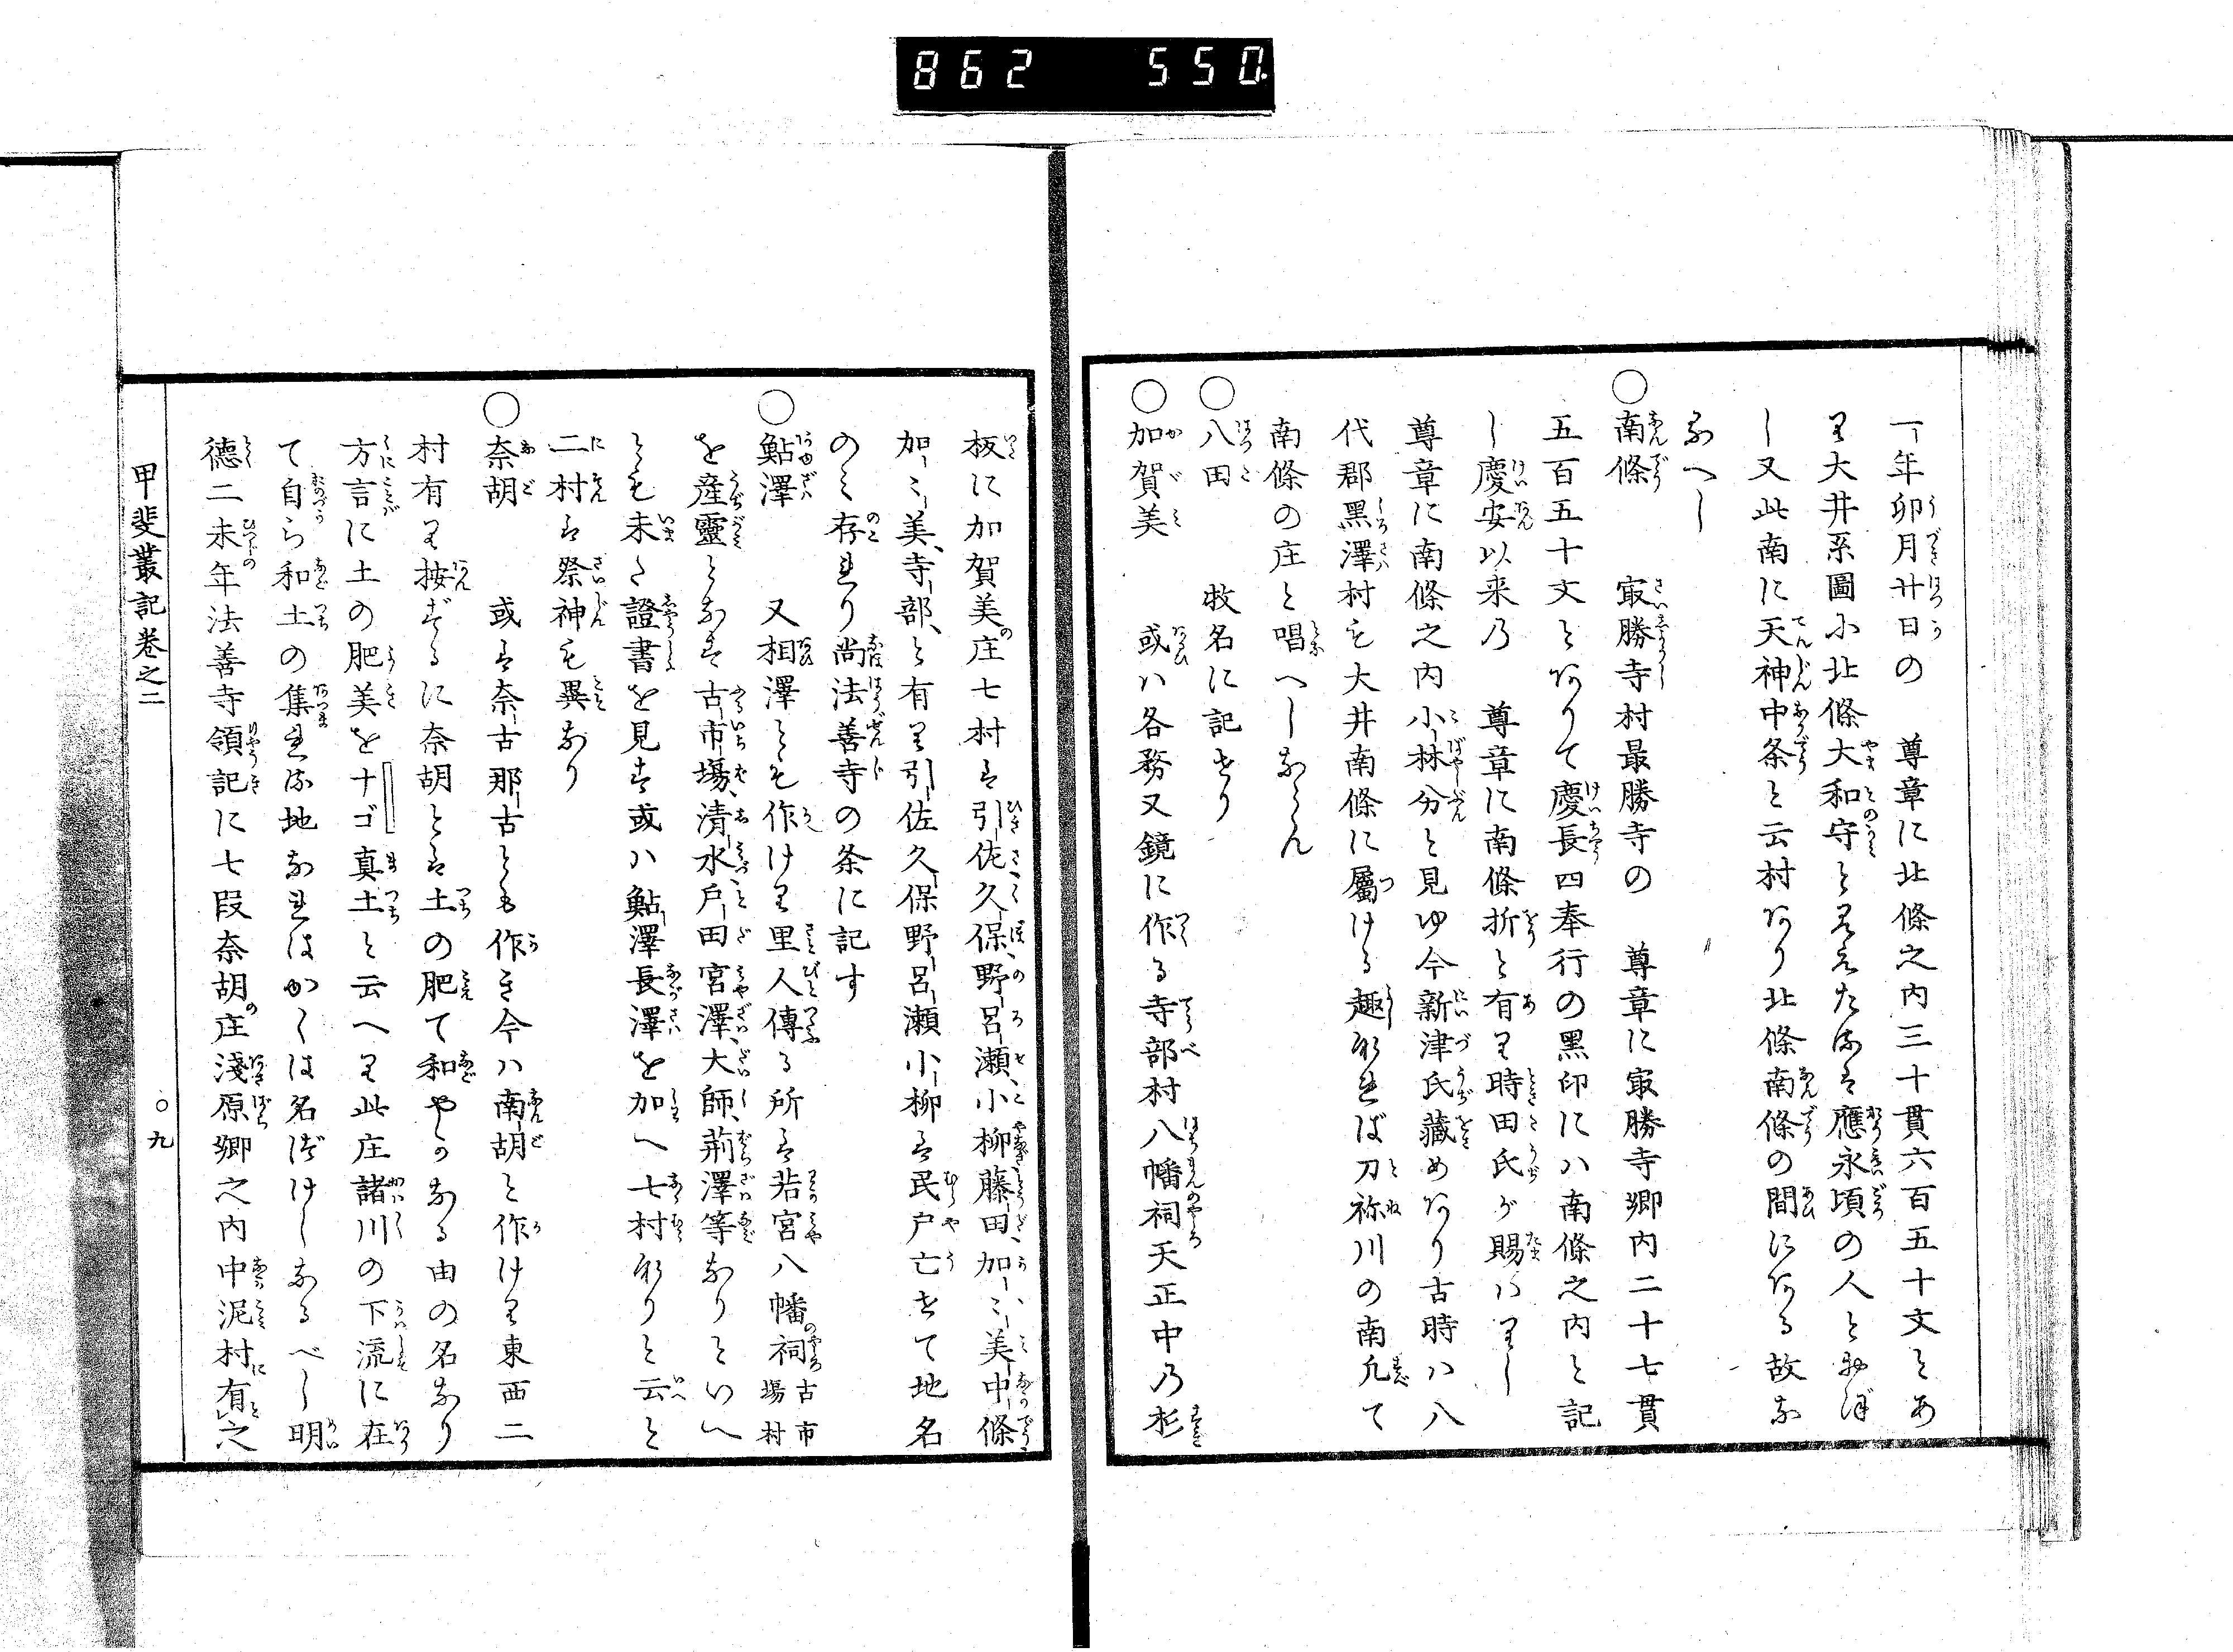 862 550
一年卯月廿日の 尊章に北條之内三十貫六百五十文とあ
り大井系圖に北條大和守と見えたるは應永頃の人とおぼ
し又此南に天神中条と云村あり北條南條の間にある故な
るへし
○南條 㝡勝寺村最勝寺の 尊章に㝡勝寺郷内二十七貫
五百五十文とありて慶長四奉行の黑印にハ南條之内と記
し慶安以来乃 尊章に南條折と有り時田氏が賜ハりし
尊章に南條之内小林分と見ゆ今新津氏藏めあり古時ハ八
代郡黑澤村も大井南條に屬ける趣なれば刀祢川の南凢て
南條の庄と唱へしならん
○八田 牧名に記せり
○加賀美 或ハ各務又鏡に作る寺部村八幡祠天正中乃杉
板に加賀美の庄七村は引佐久保、野呂瀬、小柳、藤田、加〻美、中條
加〻美、寺部、と有り引佐久保野呂瀬小柳は民戸亡せて地名
のミ存れり尚法善寺の条に記す
○鮎澤 又相澤とも作けり里人傳る所は若宮八幡の祠古市塲村
を産靈となす古市塲、清水、戸田、宮澤、大師、荊澤等なりといへ
とも未た證書を見す或ハ鮎澤長澤を加へ七村なりと云と
二村は祭神も異なり
○奈胡 或は奈古那古とも作き今ハ南胡と作けり東西二
村有り按ずるに奈胡とは土の肥て和やかなる由の名なり
方言に土の肥美を十ゴ真土と云へり此庄諸川の下流に在
て自ら和土の集れる地なればかくは名づけしなるべし明
德二未年法善寺領記に七段奈胡の庄淺原郷之内中泥村に有之
甲斐叢記卷之二 ○九